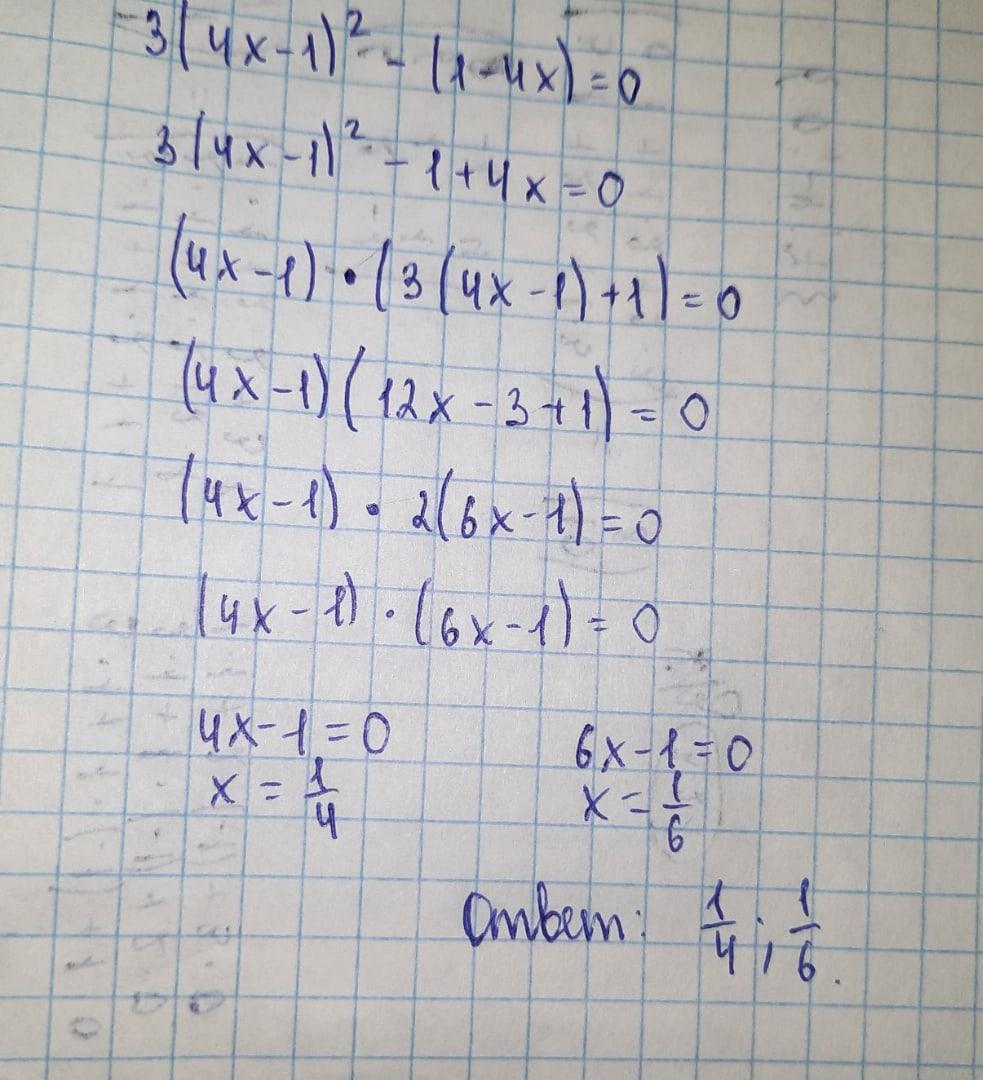 3(4x-1)² - (1-4x) = 0
3(4x-1)² - 1 + 4x = 0
(4x-1) · (3(4x-1)+1) = 0
(4x-1)(12x-3+1) = 0
(4x-1) · 2(6x-1) = 0
(4x-1) · (6x-1) = 0
4x-1=0 6x-1=0
x = 1/4 x = 1/6
Ответ: 1/4; 1/6.